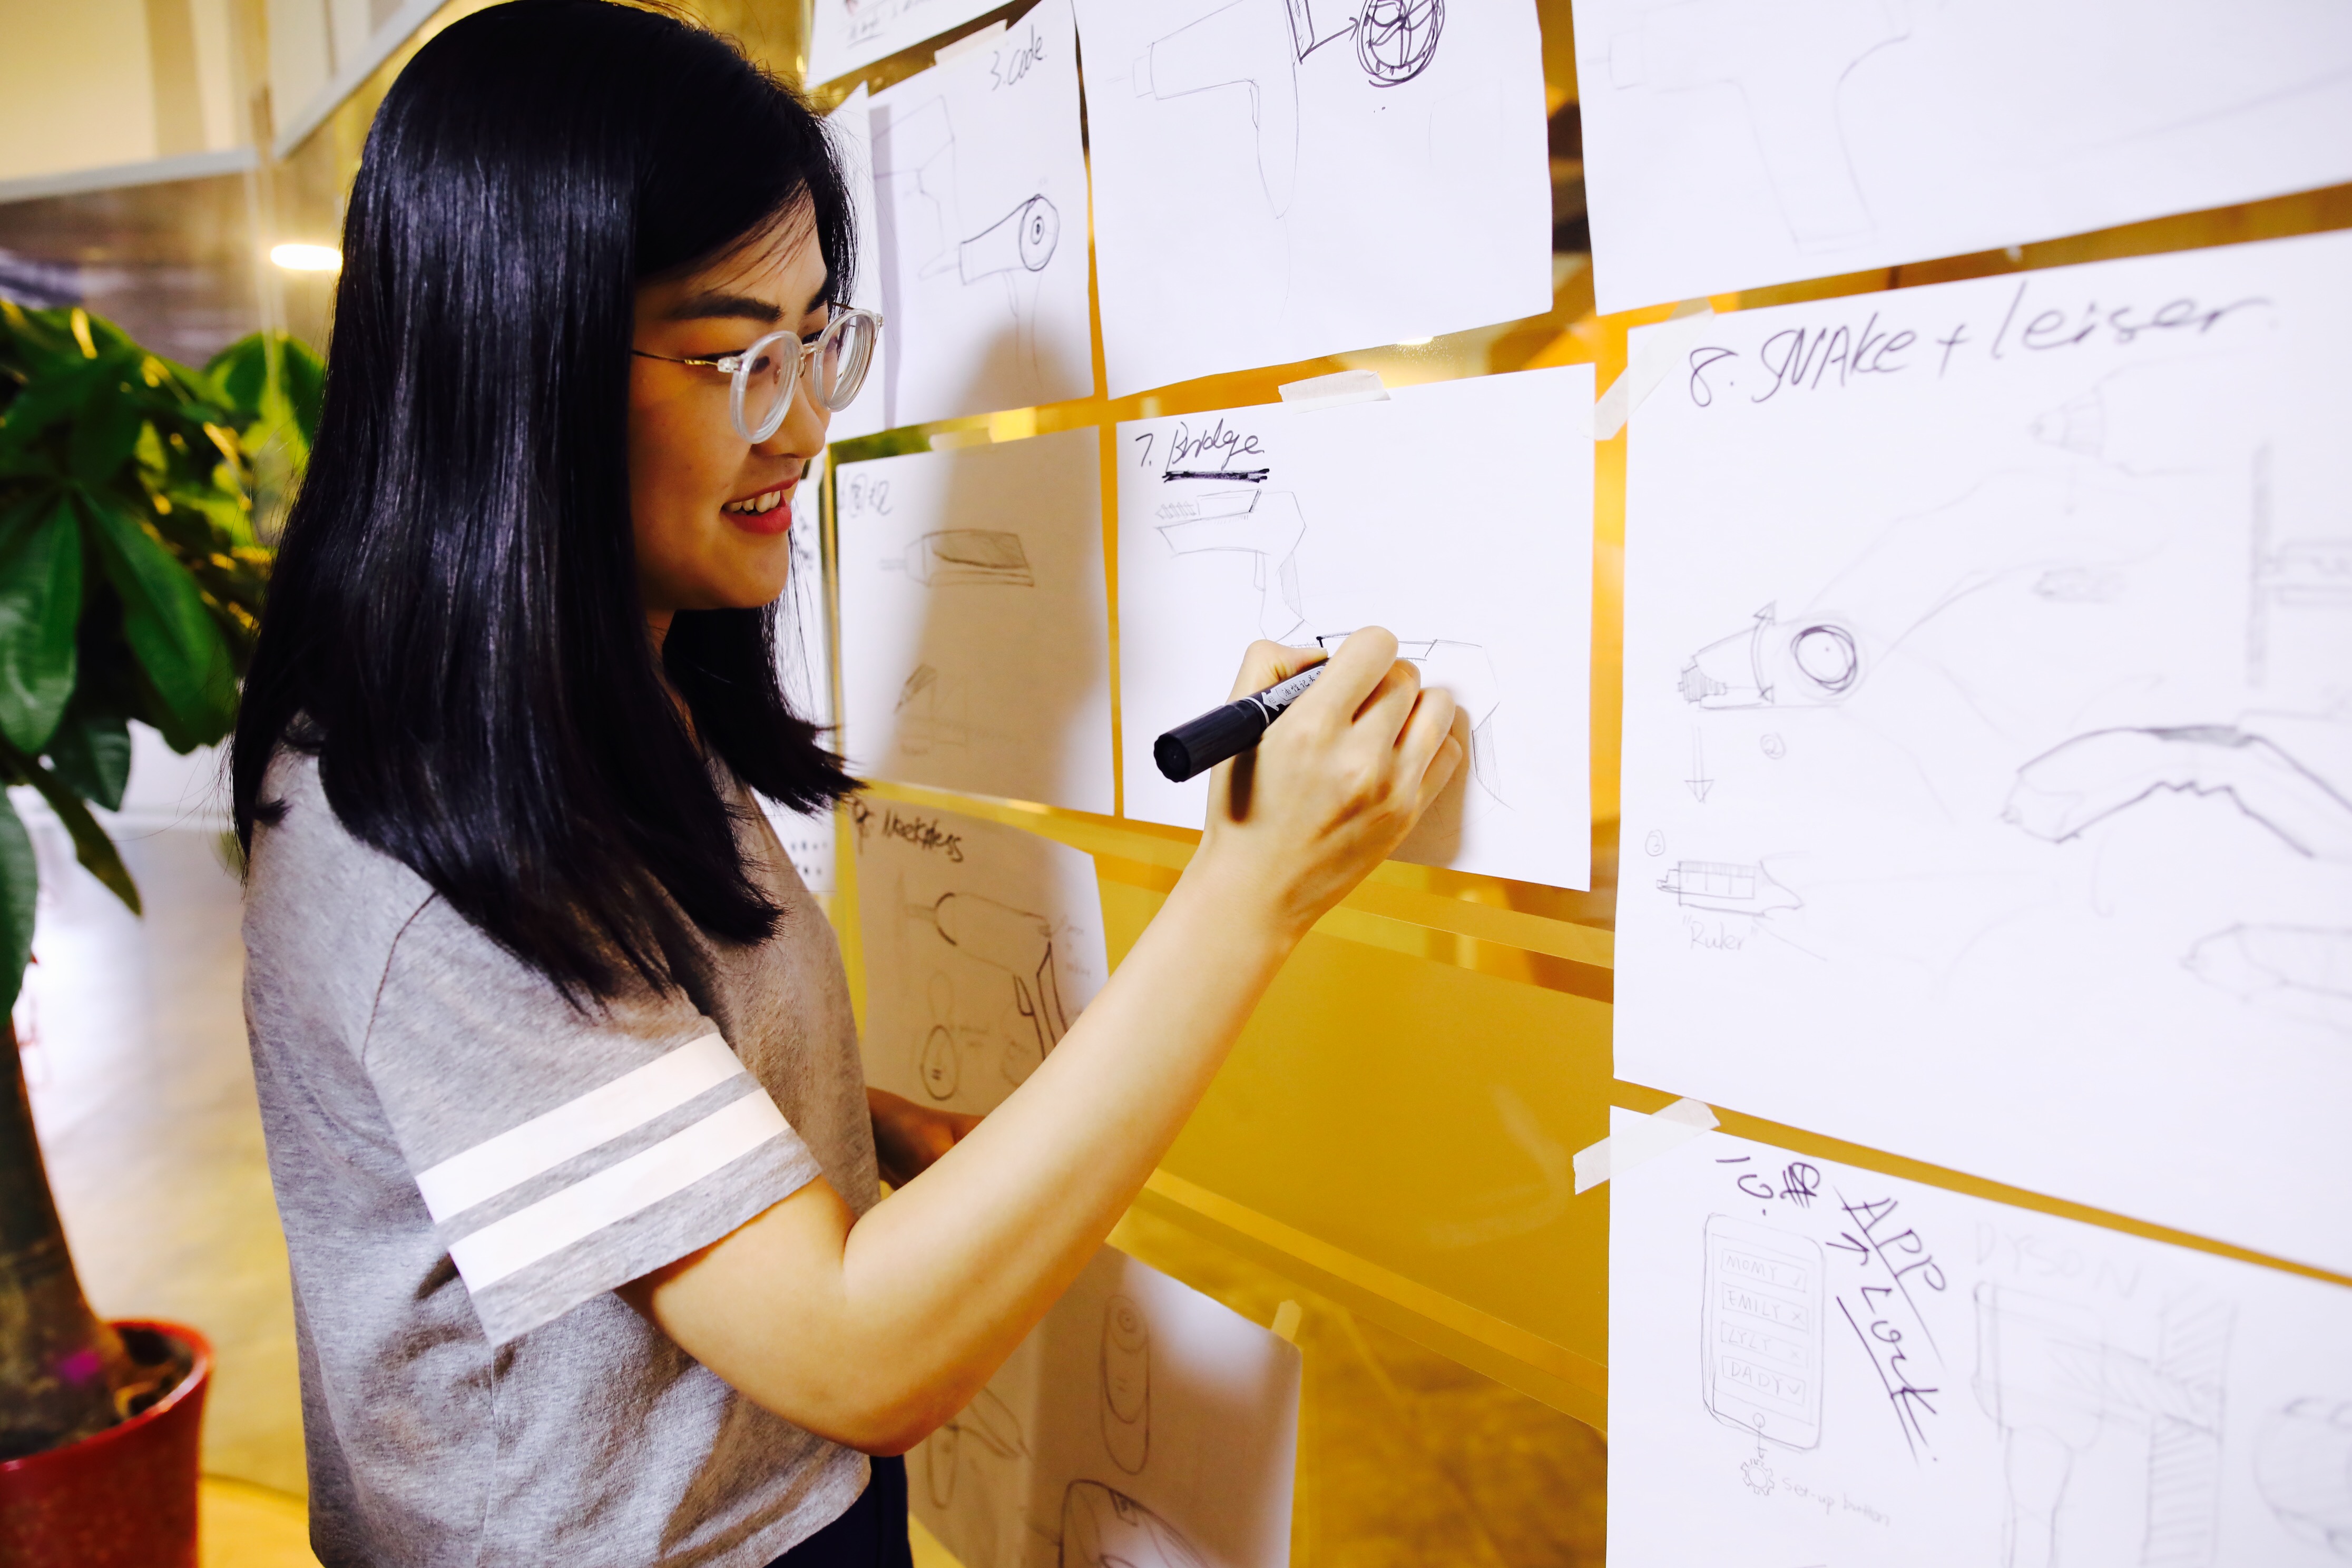 3. code
7. Bridge
8. SNAKE + leiser
"Ruler"
10.
APP
Lock
MOMY ✓
EMILY X
LYLY X
DADY ✓
set-up button
DYSON